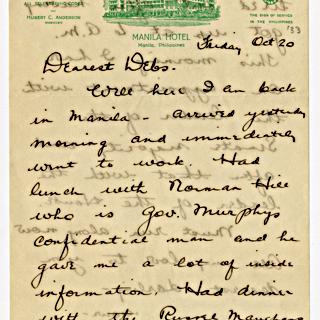 HUBERT C. ANDERSON
THE SIGN OF SERVICE
IN THE PHILIPPINES
MANILA HOTEL
Manila, Philippines
Friday Oct 20
'33
Dearest Debs.
Well here I am back
in Manila - arrived yesterday
morning and immediately
went to work. Had
lunch with Norman Hill
who is Gov. Murphys
confidential man and he
gave me a lot of inside
information. Had dinner
with the